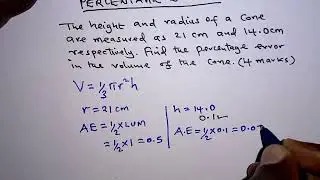 The height and radius of a Cone
are measured as 21 cm and 14.0cm
respectively. Find the percentage error
in the volume of the cone. (4 marks)
V = 1/3 πr²h
r = 21cm
h = 14.0
0.1
AE = 1/2 × LUM
A.E = 1/2 × 0.1 = 0.0
= 1/2 × 1 = 0.5